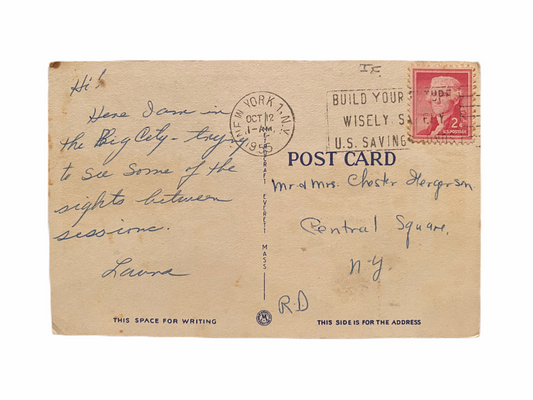 Hi!
Here I am in
the Big City - trying
to see some of the
sights between
sessions.
Laura
THIS SPACE FOR WRITING
NEW YORK 1, N.Y.
OCT 12
1-AM
1955
EVERETT MASS
BUILD YOUR FUTURE
WISELY
U.S. SAVING
2¢
U.S. POSTAGE
POST CARD
Mr and Mrs. Chester
Central Square,
N-Y.
R.D
THIS SIDE IS FOR THE ADDRESS